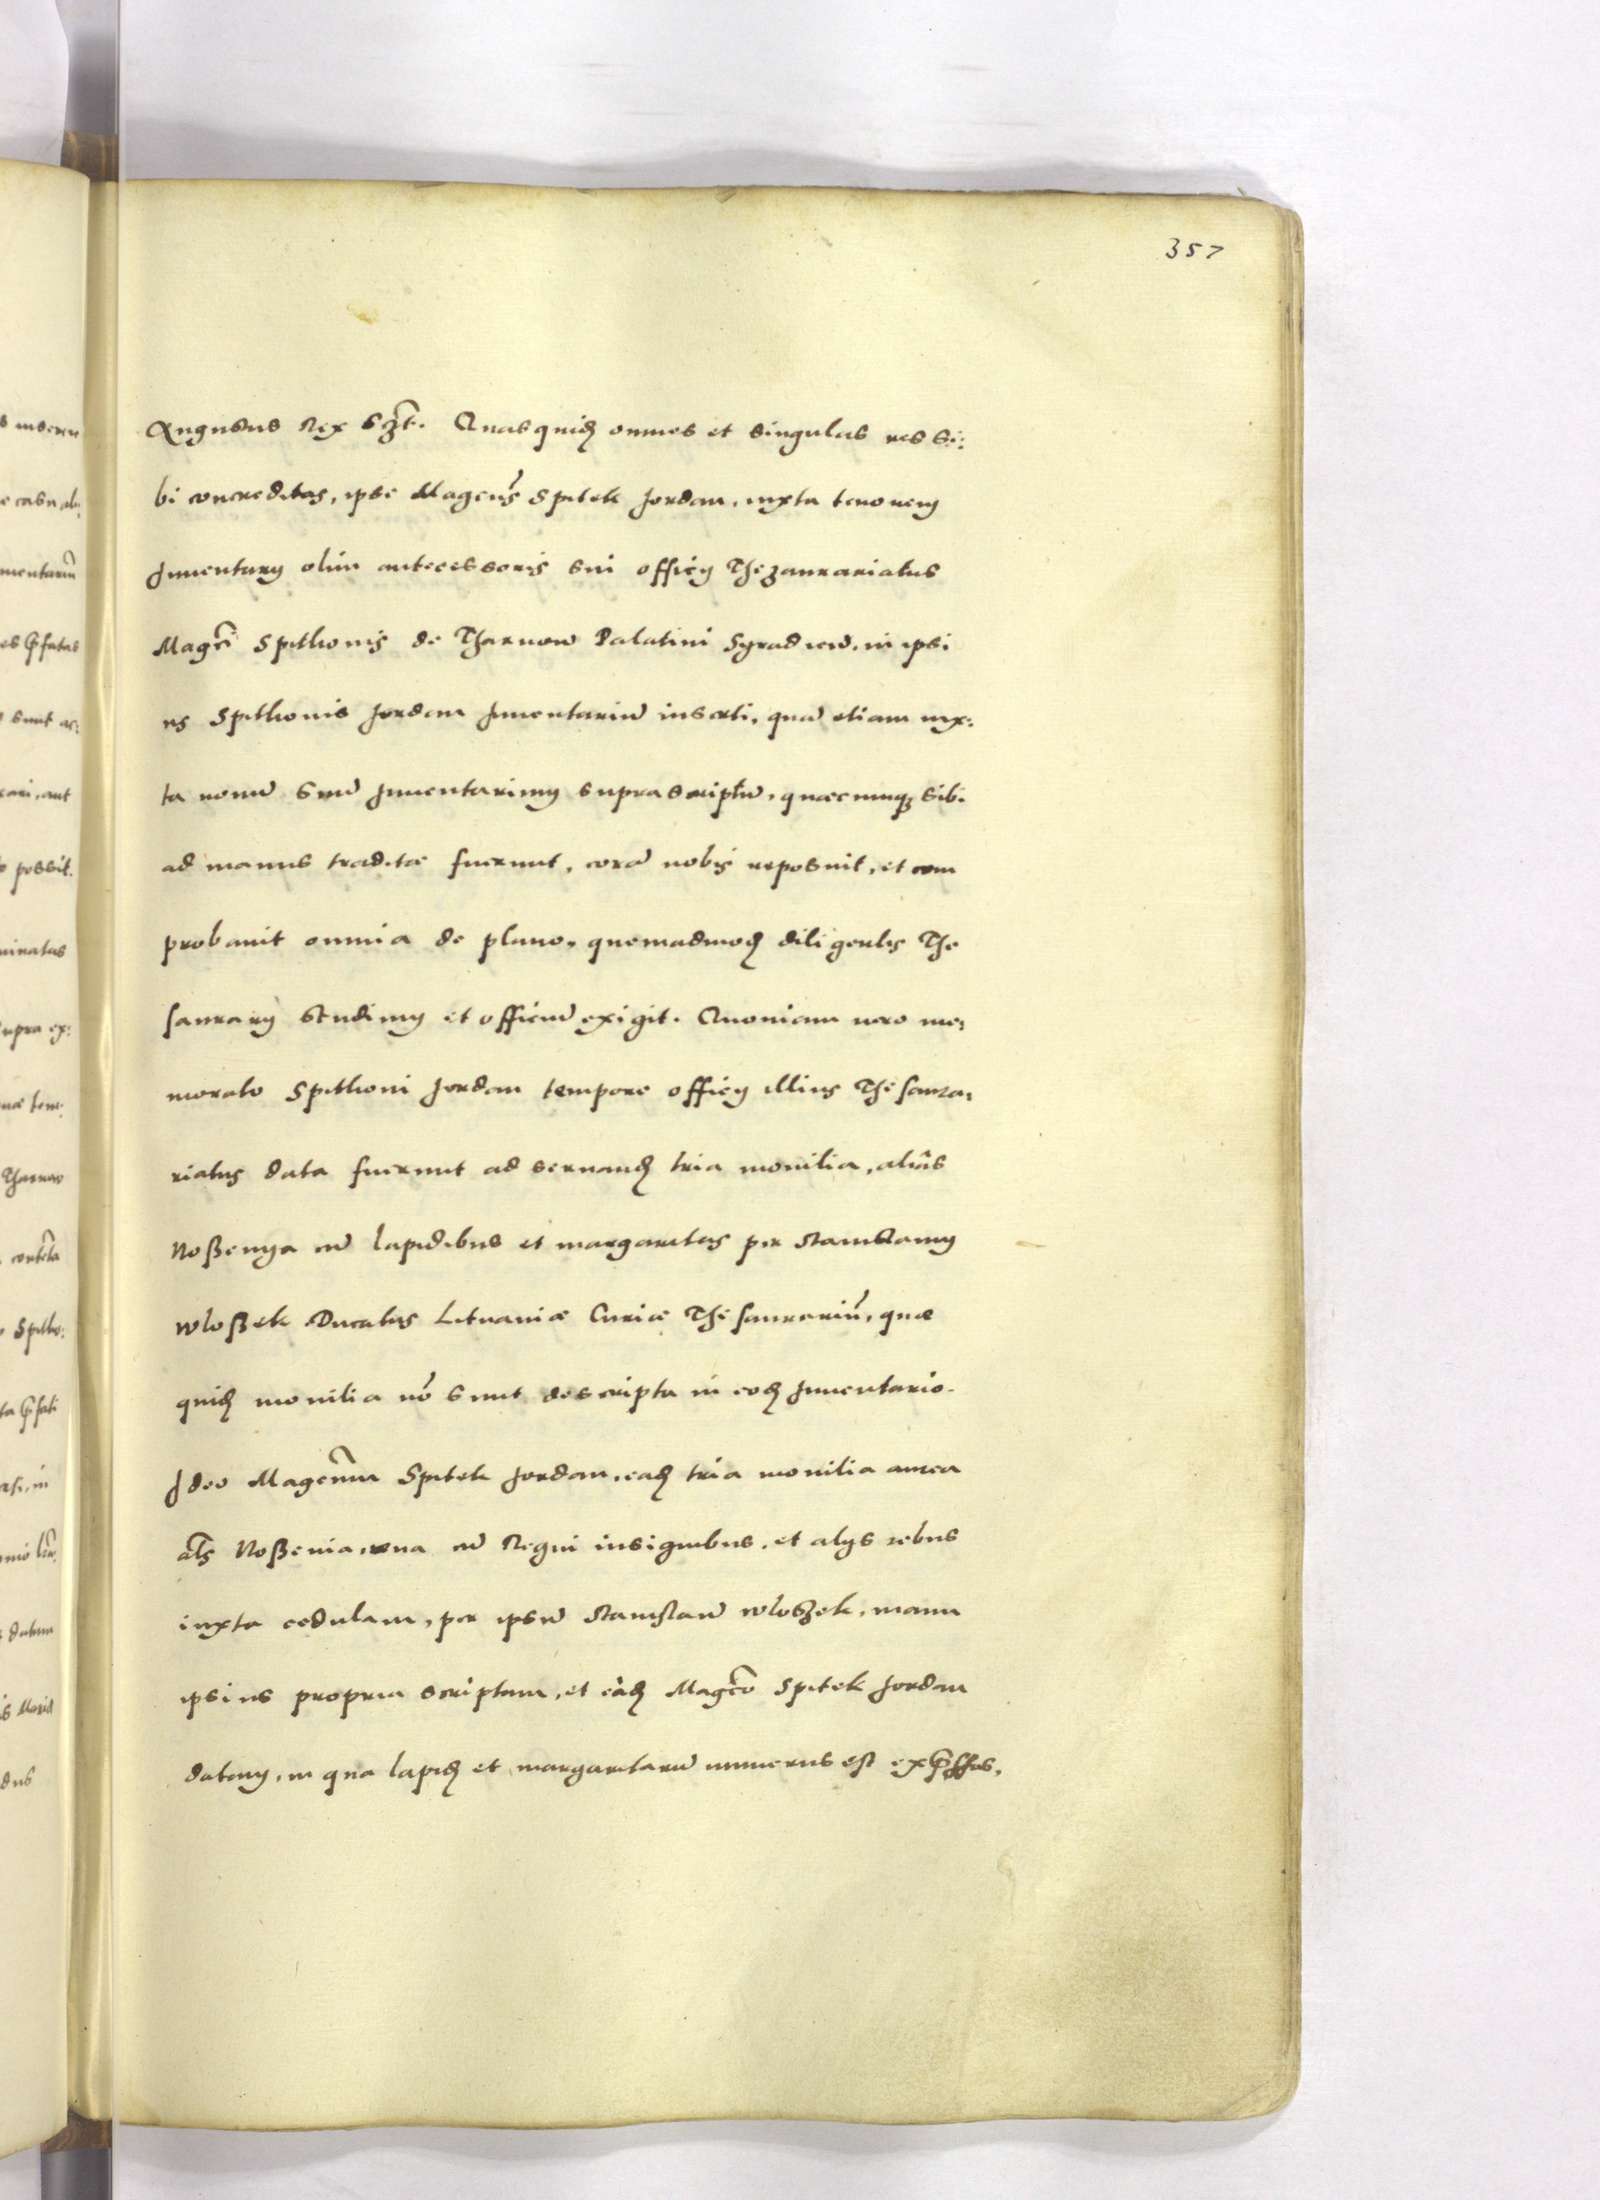 357
Augustus Rex &c̃t. Quasquid⁊ omnes et singulas res si:
bi concreditas, ipse Magcus̃ Spitek Jordan, iuxta tenorem
Jnuentarij olim antecessoris sui officij Thezaurariatus
Magc̃i Spithonis de Tharnow Palatini Syradien̄. in ipsi
us Spithonis Jordan Jnuentariū inserti, quā etiam iux:
ta nouū suū Jnuentarium suprascriptū, quæcunq⁊ sibi
ad manus traditæ fuerunt, corā nobis reposuit, et com
probauit omnia de plano, quemadmod⁊ diligentis The
saurarij studium et officiū exigit. Quoniam vero me:
morato Spithoni Jordan tempore officij illius Thesaura:
riatus data fuerunt ad seruand⁊ tria monilia, aliâs
Noßenya cū lapidibus et margaritis per Stanislaum
Wloßek Ducatus Lituaniæ Curiæ Thesaurariũ, quæ
quid⁊ monilia nō sunt descripta in eod⁊ Jnuentario.
Jdeo Magcum̃ Spitek Jordan, ead⁊ tria monilia aurea
al̃s Noßenia, vna cū Regni insignibus, et alijs rebus
iuxta cedulam, per ipsū Stanislaū Wloßek, manu
ipsius propria scriptam, et ead⁊ Magc̃o Spitek Jordan
datam, in qua lapid⁊ et margaritarū numerus est exp̃ssus,